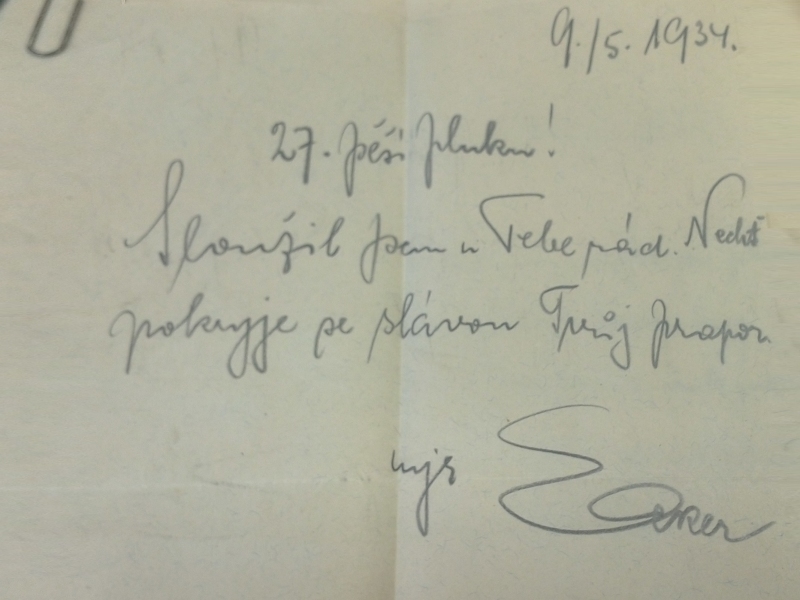 9./5. 1934.
27. pěší pluku!
Sloužil jsem u Tebe rád. Nechť
pokryje se slávou Tvůj prapor.
mjr Ecker